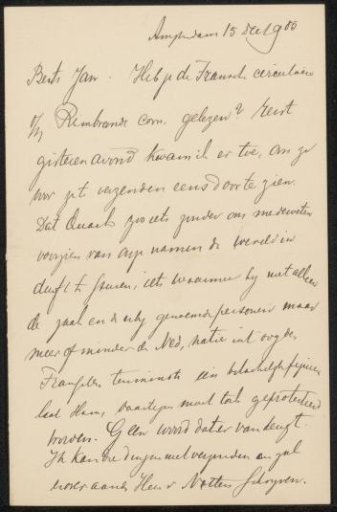 Amsterdam 15 Dec 1900
Beste Jan. Heb je de Fransche circulaire
v/h Rembrandt com. gelezen? Eerst
gisteren avond kwam ik er toe, om ze
voor het verzenden eens door te zien.
Dat Quack zoo iets zonder ons medeweten
voorzien van onze namen de wereld in
durft te sturen, iets waarmee hij niet alleen
de zaak en de erbij genoemde personen maar
meer of minder de Ned. natie in 't oog der
Franschen tenminste een belachelijk figuur
laat slaan, daartegen moet toch geprotesteerd
worden. Geen woord dat er van deugt.
Ik kan die dingen niet verzenden en zal
erover aan de Heer v. Notten schrijven.